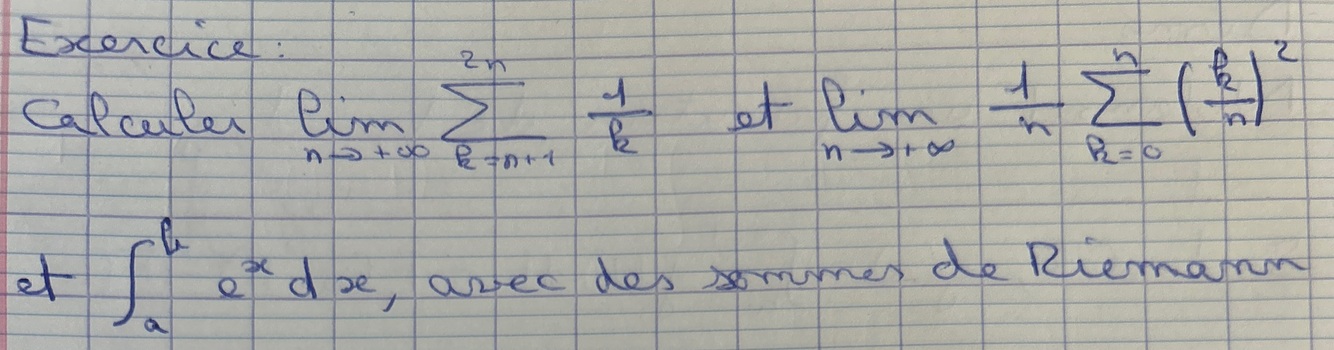 Exercice :
Calculer lim n→+∞ ∑ k=n+1 2n 1/k et lim n→+∞ 1/n ∑ k=0 n (k/n)²
et ∫ a b e^x dx, avec des sommes de Riemann